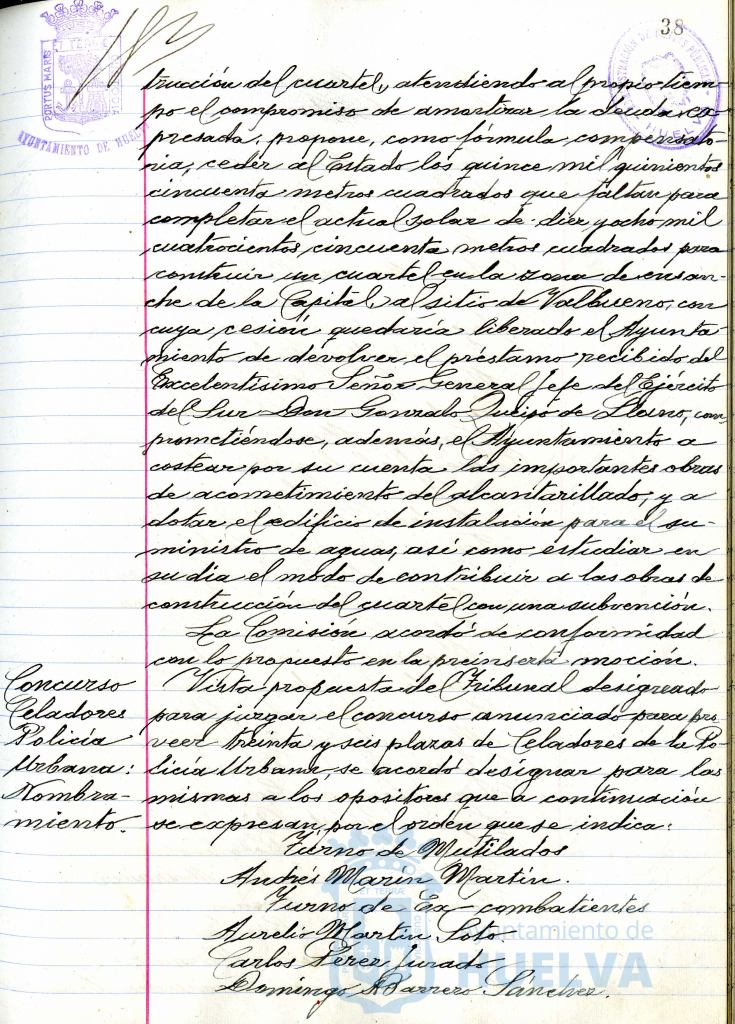 38
PORTUS MARIS
ET TERRÆ
CUSTODIA
AYUNTAMIENTO DE HUELVA
HUELVA
trucción del cuartel, atendiendo al propio tiem-
po el compromiso de amortizar la deuda ex-
presada, propone, como fórmula compensato-
ria, ceder al Estado los quince mil quinientos
cincuenta metros cuadrados que faltan para
completar el actual solar de diez y ocho mil
cuatrocientos cincuenta metros cuadrados para
construir un cuartel en la zona de ensan-
che de la Capital, al sitio de Valbueno, con
cuya cesión quedaría liberado el Ayunta-
miento de devolver el préstamo recibido del
Excelentísimo Señor General Jefe del Ejército
del Sur Don Gonzalo Queipo de Llano, com-
prometiéndose, además, el Ayuntamiento a
costear por su cuenta las importantes obras
de acometimiento del alcantarillado, y a
dotar el edificio de instalación para el su-
ministro de aguas, así como estudiar en
su día el modo de contribuir a las obras de
construcción del cuartel con una subvención.
La Comisión acordó de conformidad
con lo propuesto en la preinserta moción.
Concurso
Celadores
Policía
Urbana:
Nombra-
miento.
Vista propuesta del Tribunal designado
para juzgar el concurso anunciado para pro
veer treinta y seis plazas de Celadores de la Po-
licía Urbana, se acordó designar para las
mismas a los opositores que a continuación
se expresan, por el orden que se indica:
Turno de Mutilados
André Marín Martín.
Turno de Ex-combatientes
Aurelio Martín Soto
Carlos Pérez Jurado
Domingo Barrero Sánchez.
Ayuntamiento de
HUELVA